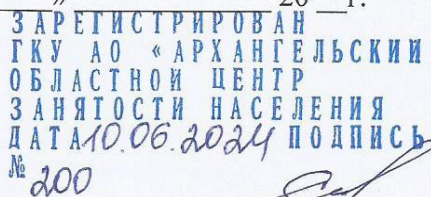 " 20 г.
ЗАРЕГИСТРИРОВАН
ГКУ АО «АРХАНГЕЛЬСКИЙ
ОБЛАСТНОЙ ЦЕНТР
ЗАНЯТОСТИ НАСЕЛЕНИЯ
ДАТА 10.06.2024 ПОДПИСЬ
№ 200